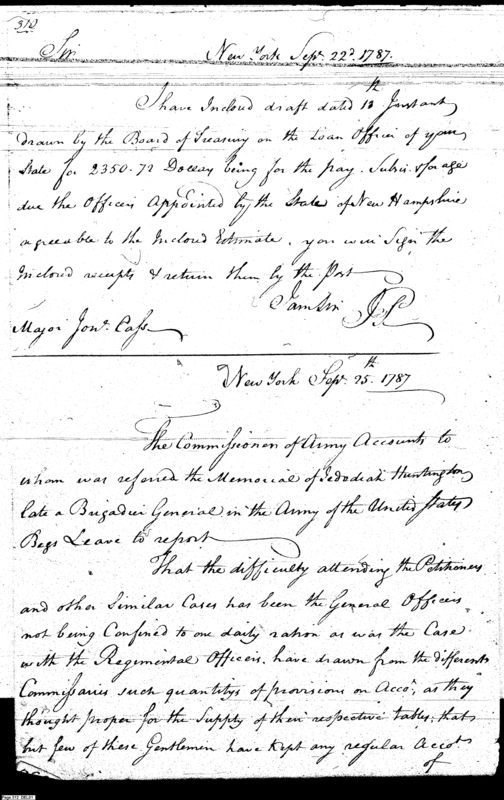 312
Sir New York Sepr. 22d. 1787.
I have Inclosd draft dated 13th Instant
drawn by the Board of Treasury on the Loan Officer of your
State for 2350.72 Dollars being for the pay. Subsis. & forage
due the Officers Appointed by the State of New Hampshire
agreeable to the Inclosed Estimate. you will Sign the
Inclosed receipts & return them by the Post
I am Sir JP
Major Jona. Cass
New York Sepr. 25th. 1787
The Commissioner of Army Accounts to
whom was referred the Memorial of Jedediah Huntington
late a Brigadier General in the Army of the United States
Begs Leave to report
That the difficulty attending the Petitioners
and other Similar Cases has been the General Officers
not being Confined to one daily ration as was the Case
with the Regimental Officers, have drawn from the different
Commissaries such quantitys of provisions on Accot. as they
thought proper for the Supply of their respective tables, that
but few of these Gentlemen have kept any regular Accots
of